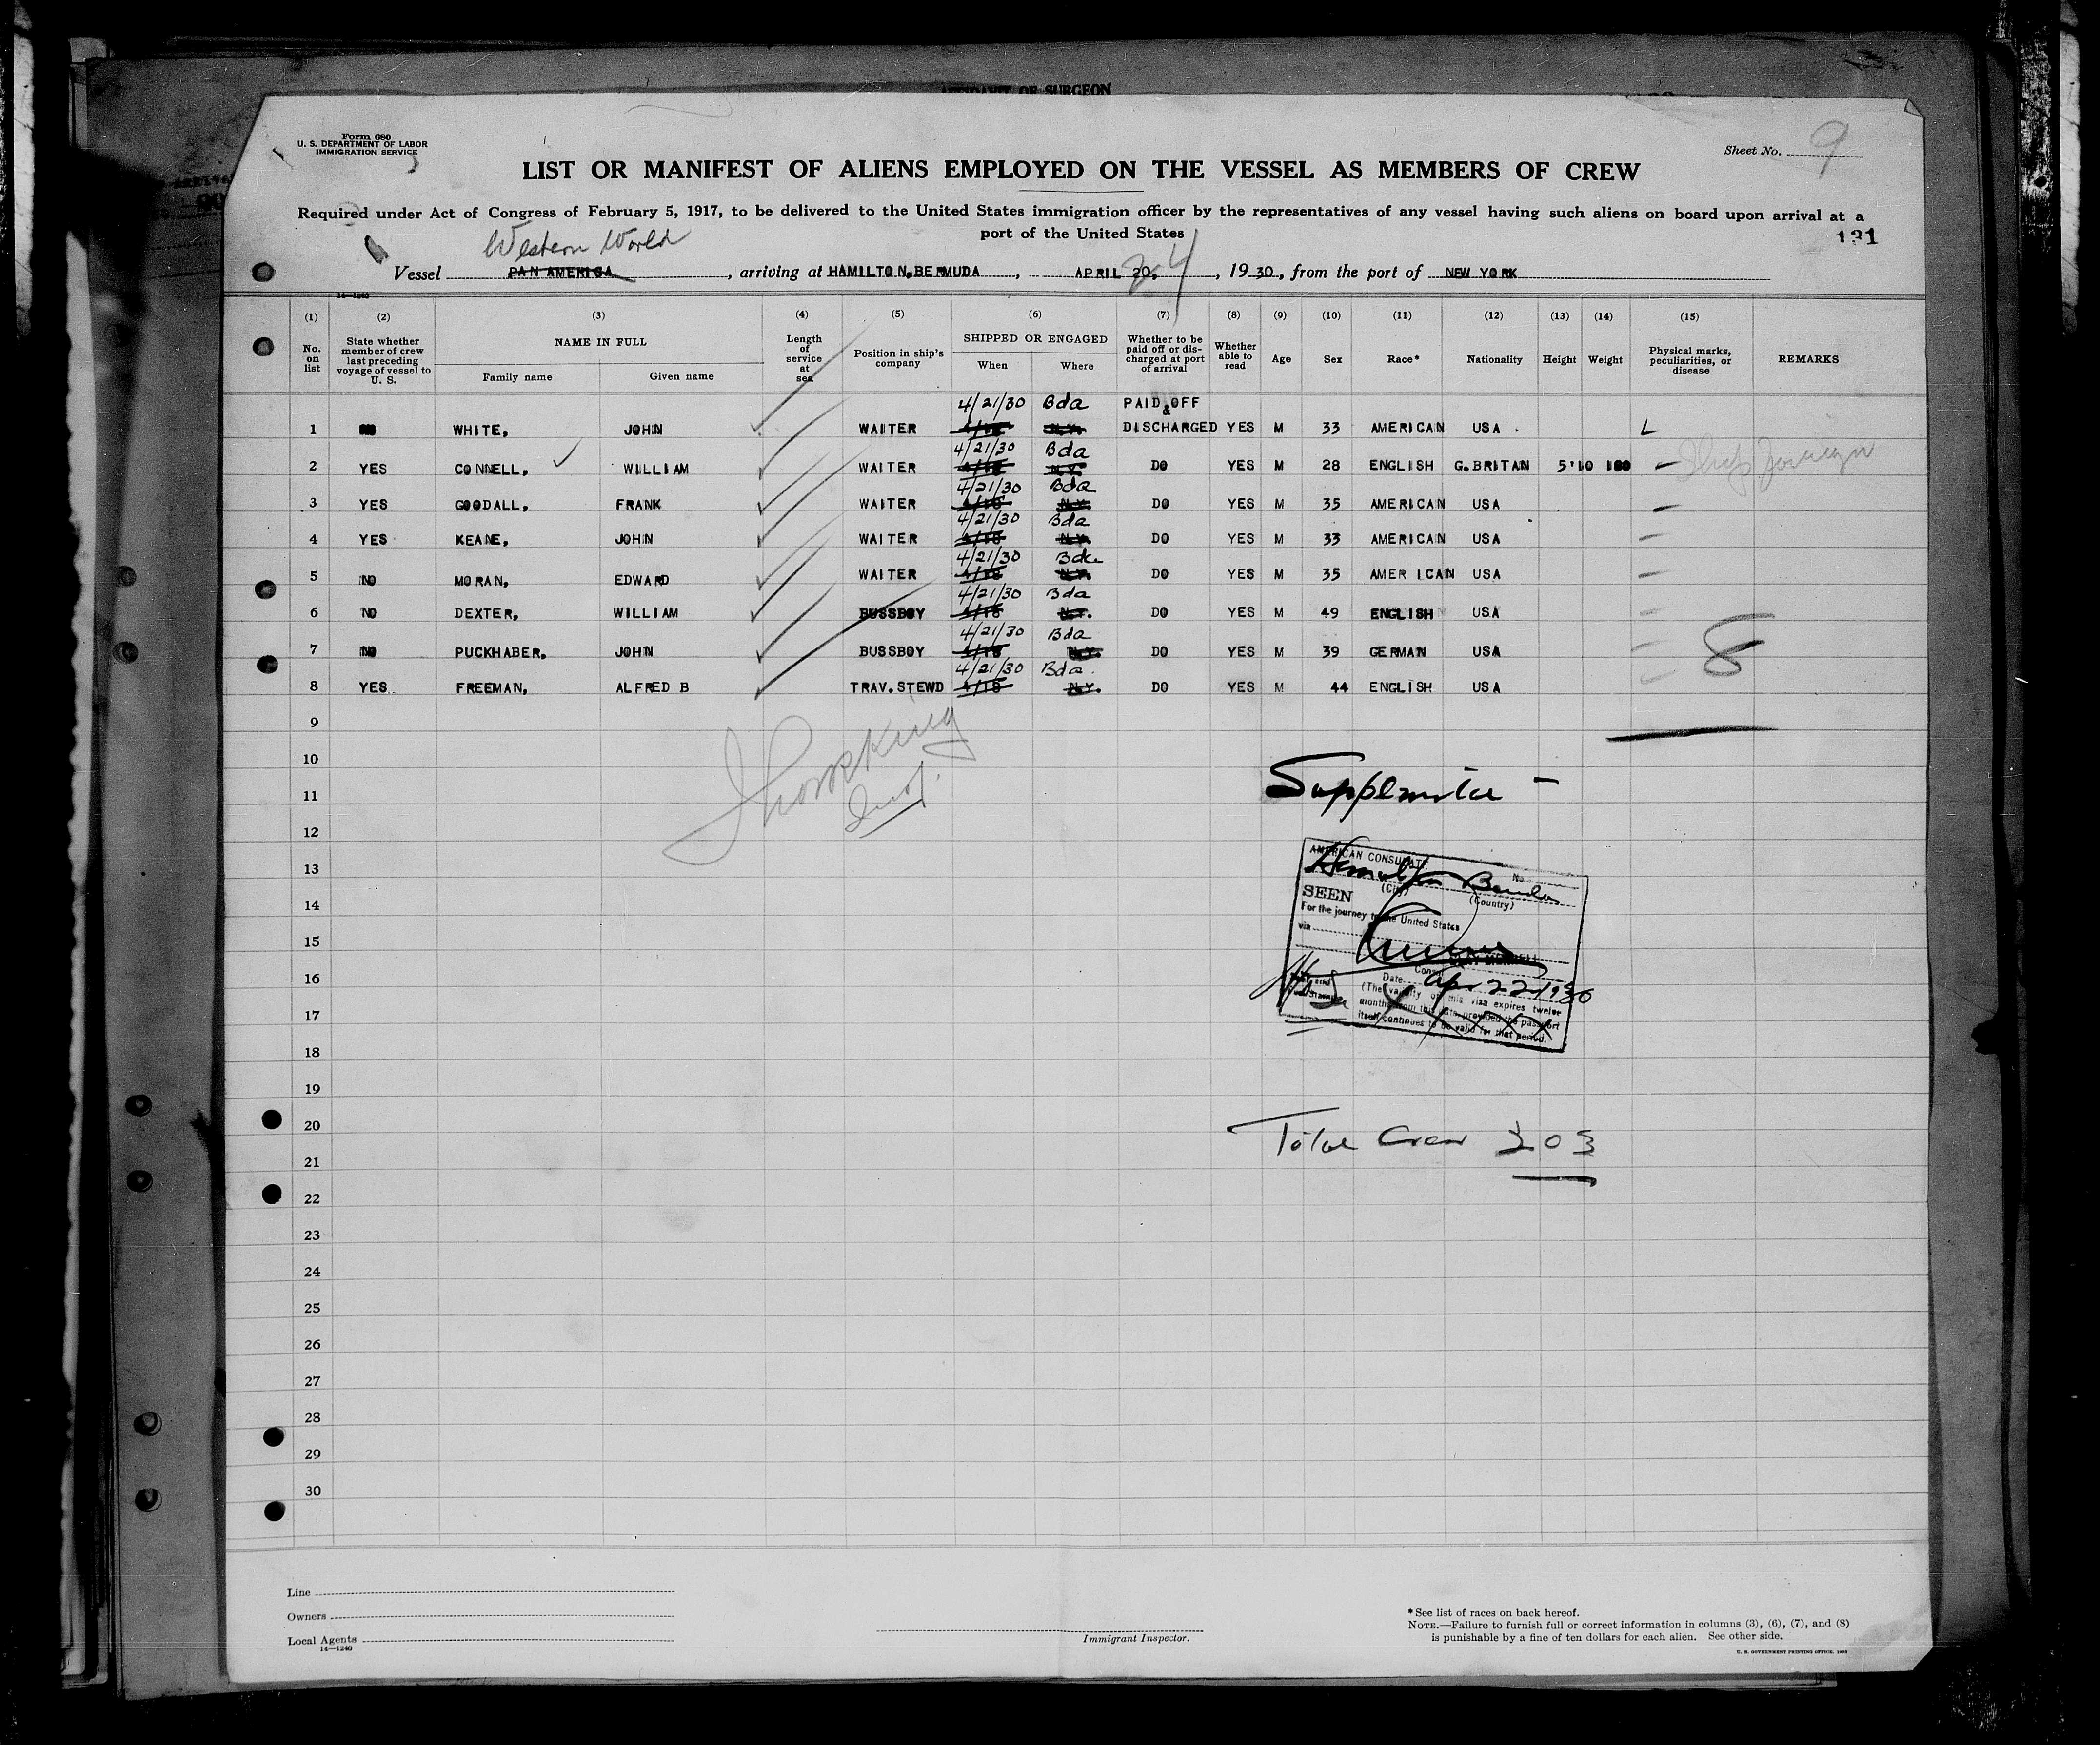 AFFIDAVIT OF SURGEON
Form 680
U. S. DEPARTMENT OF LABOR
IMMIGRATION SERVICE
Sheet No. 9
LIST OR MANIFEST OF ALIENS EMPLOYED ON THE VESSEL AS MEMBERS OF CREW
Required under Act of Congress of February 5, 1917, to be delivered to the United States immigration officer by the representatives of any vessel having such aliens on board upon arrival at a
port of the United States
131
Western World
Vessel PAN AMERICA, arriving at HAMILTON, BERMUDA, APRIL 20, 24, 1930, from the port of NEW YORK
14—1240
(1) (2) (3) (4) (5) (6) (7) (8) (9) (10) (11) (12) (13) (14) (15)
No. on list State whether member of crew last preceding voyage of vessel to U. S. NAME IN FULL Family name Given name Length of service at sea Position in ship's company SHIPPED OR ENGAGED When Where Whether to be paid off or discharged at port of arrival Whether able to read Age Sex Race* Nationality Height Weight Physical marks, peculiarities, or disease REMARKS
4/21/30 Bda PAID & OFF
1 NO WHITE, JOHN WAITER 4/18 N.Y. DISCHARGED YES M 33 AMERICAN USA
4/21/30 Bda
2 YES CONNELL, WILLIAM WAITER 4/18 N.Y. DO YES M 28 ENGLISH G.BRITAN 5'10 180
4/21/30 Bda
3 YES GOODALL, FRANK WAITER 4/18 N.Y. DO YES M 35 AMERICAN USA
4/21/30 Bda
4 YES KEANE, JOHN WAITER 4/18 N.Y. DO YES M 33 AMERICAN USA
4/21/30 Bda
5 NO MORAN, EDWARD WAITER 4/18 N.Y. DO YES M 35 AMERICAN USA
4/21/30 Bda
6 NO DEXTER, WILLIAM BUSSBOY 4/18 N.Y. DO YES M 49 ENGLISH USA
4/21/30 Bda
7 NO PUCKHABER, JOHN BUSSBOY 4/18 N.Y. DO YES M 39 GERMAN USA
8
4/21/30 Bda.
8 YES FREEMAN, ALFRED B TRAV.STEWD 4/18 N.Y. DO YES M 44 ENGLISH USA
9
10
11
12
13
14
15
16
17
18
19
20
21
22
23
24
25
26
27
28
29
30
AMERICAN CONSULATE
No.
Hamilton Bermuda
(City) (Country)
SEEN
For the journey to the United States
via
Consul
Date Apr 22 1930
(The validity of this visa expires twelve
months from this date, provided the passport
itself continues to be valid for that period.
Total Crew 203
Line
Owners
Local Agents
14—1240
Immigrant Inspector.
* See list of races on back hereof.
NOTE.—Failure to furnish full or correct information in columns (3), (6), (7), and (8)
is punishable by a fine of ten dollars for each alien. See other side.